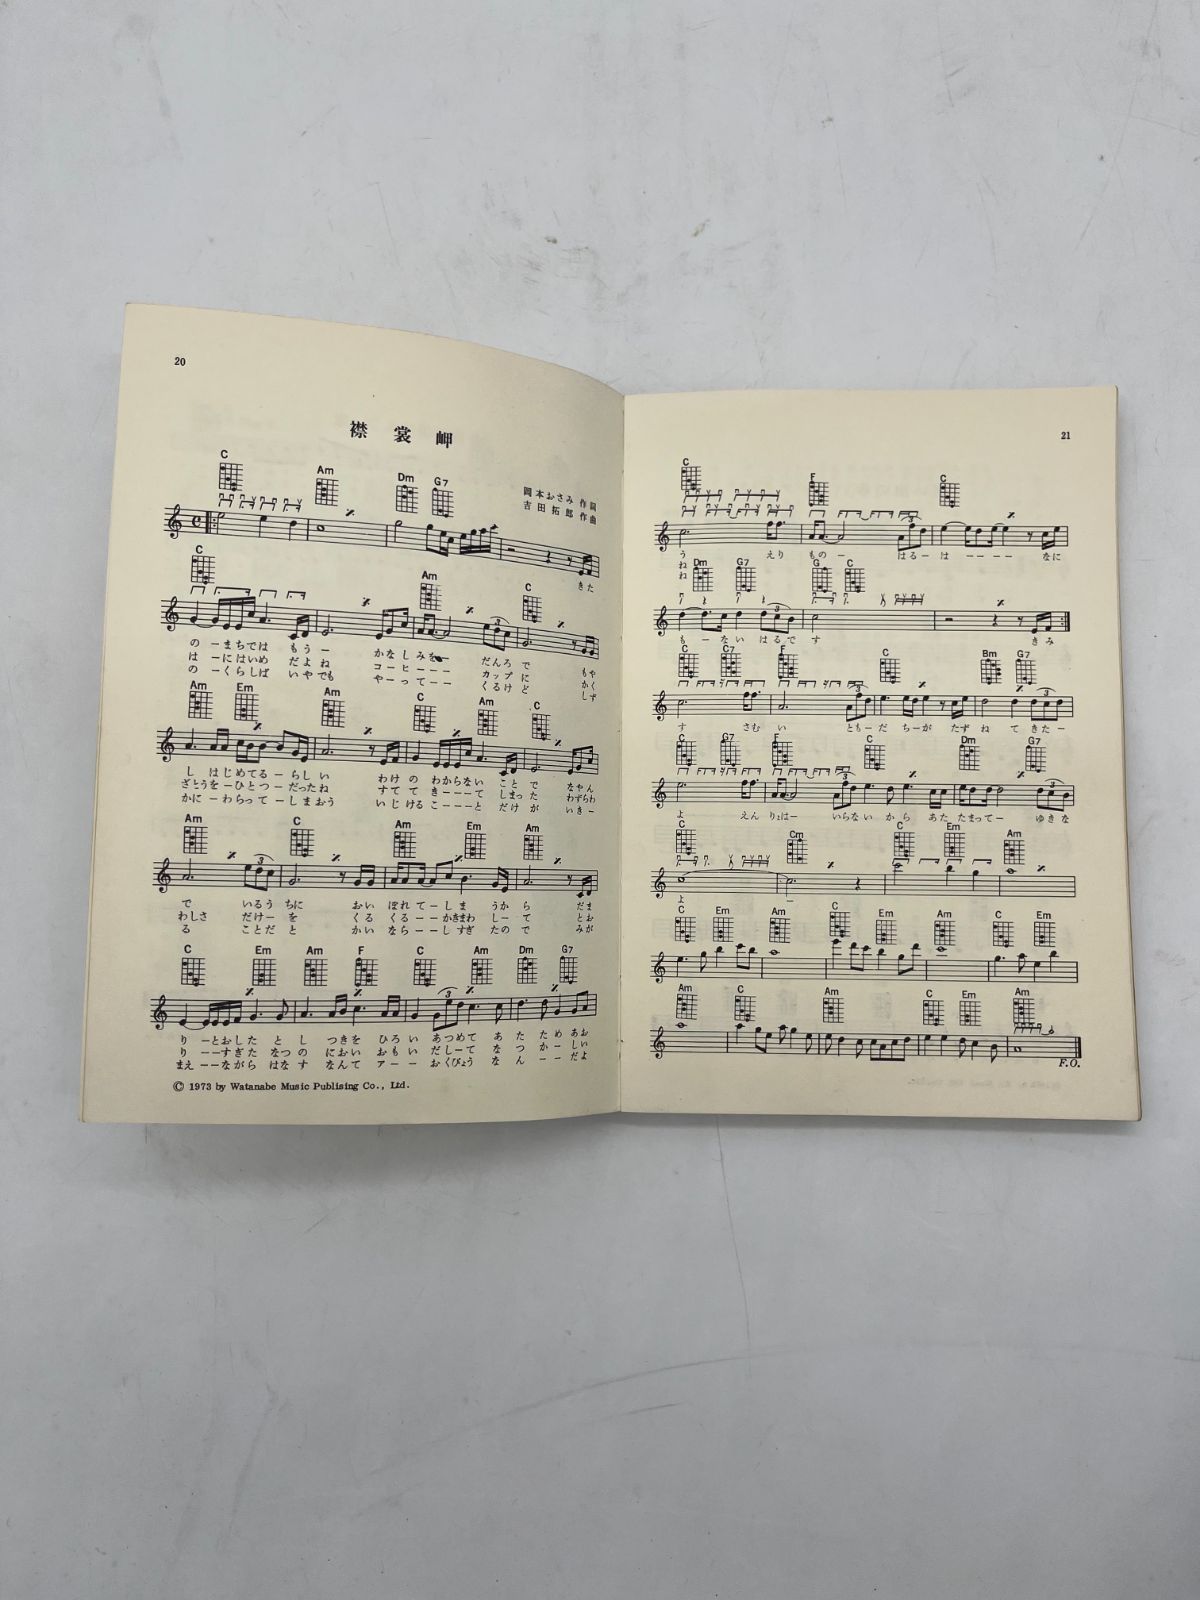 20
襟裳岬
岡本おさみ 作詞
吉田拓郎 作曲
C Am Dm G7
きた
C Am C
のーまちでは もうー かなしみを だんろで もや
はーにはいめ だよね コーヒーーー カップに かく
のーくらしば いやでも やーってーー くるけど しず
Am Em Am C Am C
しはじめてるーらしい わけのわからない ことで なやん
ざとうをーひとつーだったね すててきーーーて しまった わずらわ
かにーわらってーしまおう いじけるこーーーと だけが いきー
Am C Am Em Am
で いるうちに おいぼれてーしまうから だま
わしさ だけーを くるくるーーかきまわしーて とお
る ことだと かいならーーしすぎたので みが
C Em Am F C Am Dm G7
りーとおしたとし つきをひろいあつめて あたためあお
りーーすぎたなつの においおもいだしーて なつかーしい
まえーーながらはなす なんてアーーおくびょう なんーーだよ
© 1973 by Watanabe Music Publising Co., Ltd.
21
C F C
う えり ものー はるーはーーーー なに
ね
ね
Dm G7 G C
もーないはるです きみ
C C7 F C Bm G7
すさむい ともーだちーが たずねてきたー
C G7 F C Dm G7
よ えんりょはー いらないから あたたまってー ゆきな
C Cm C Em Am
よ ー
C Em Am C Em Am C Em
Am C Am C Em Am
F.O.